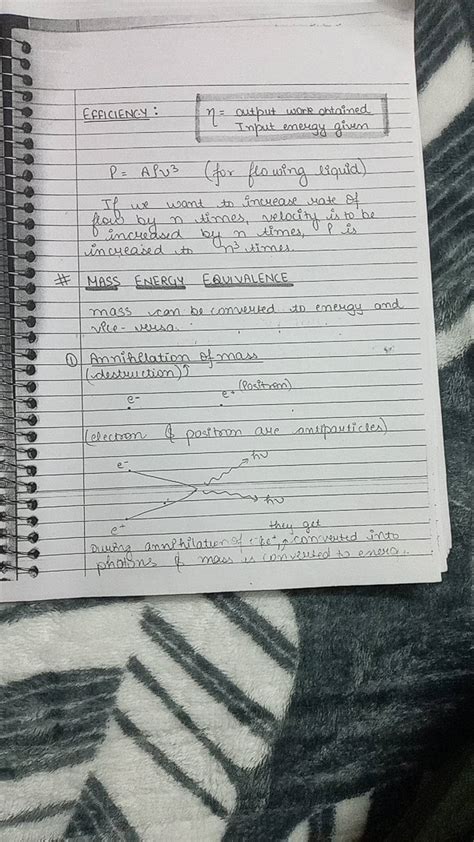 EFFICIENCY : η = output work obtained
Input energy given
P = Aρv³ (for flowing liquid)
If we want to increase rate of
flow by n times, velocity is to be
increased by n times, P is
increased to n³ times.
# MASS ENERGY EQUIVALENCE
mass can be converted to energy and
vice-versa.
① Annihilation of mass
(destruction)↑
e⁻ e⁺ (Positron)
(electron & positron are antiparticles)
e⁻ hν
hν
e⁺
they get
During annihilation of e⁺, converted into
photons & mass is converted to energy.